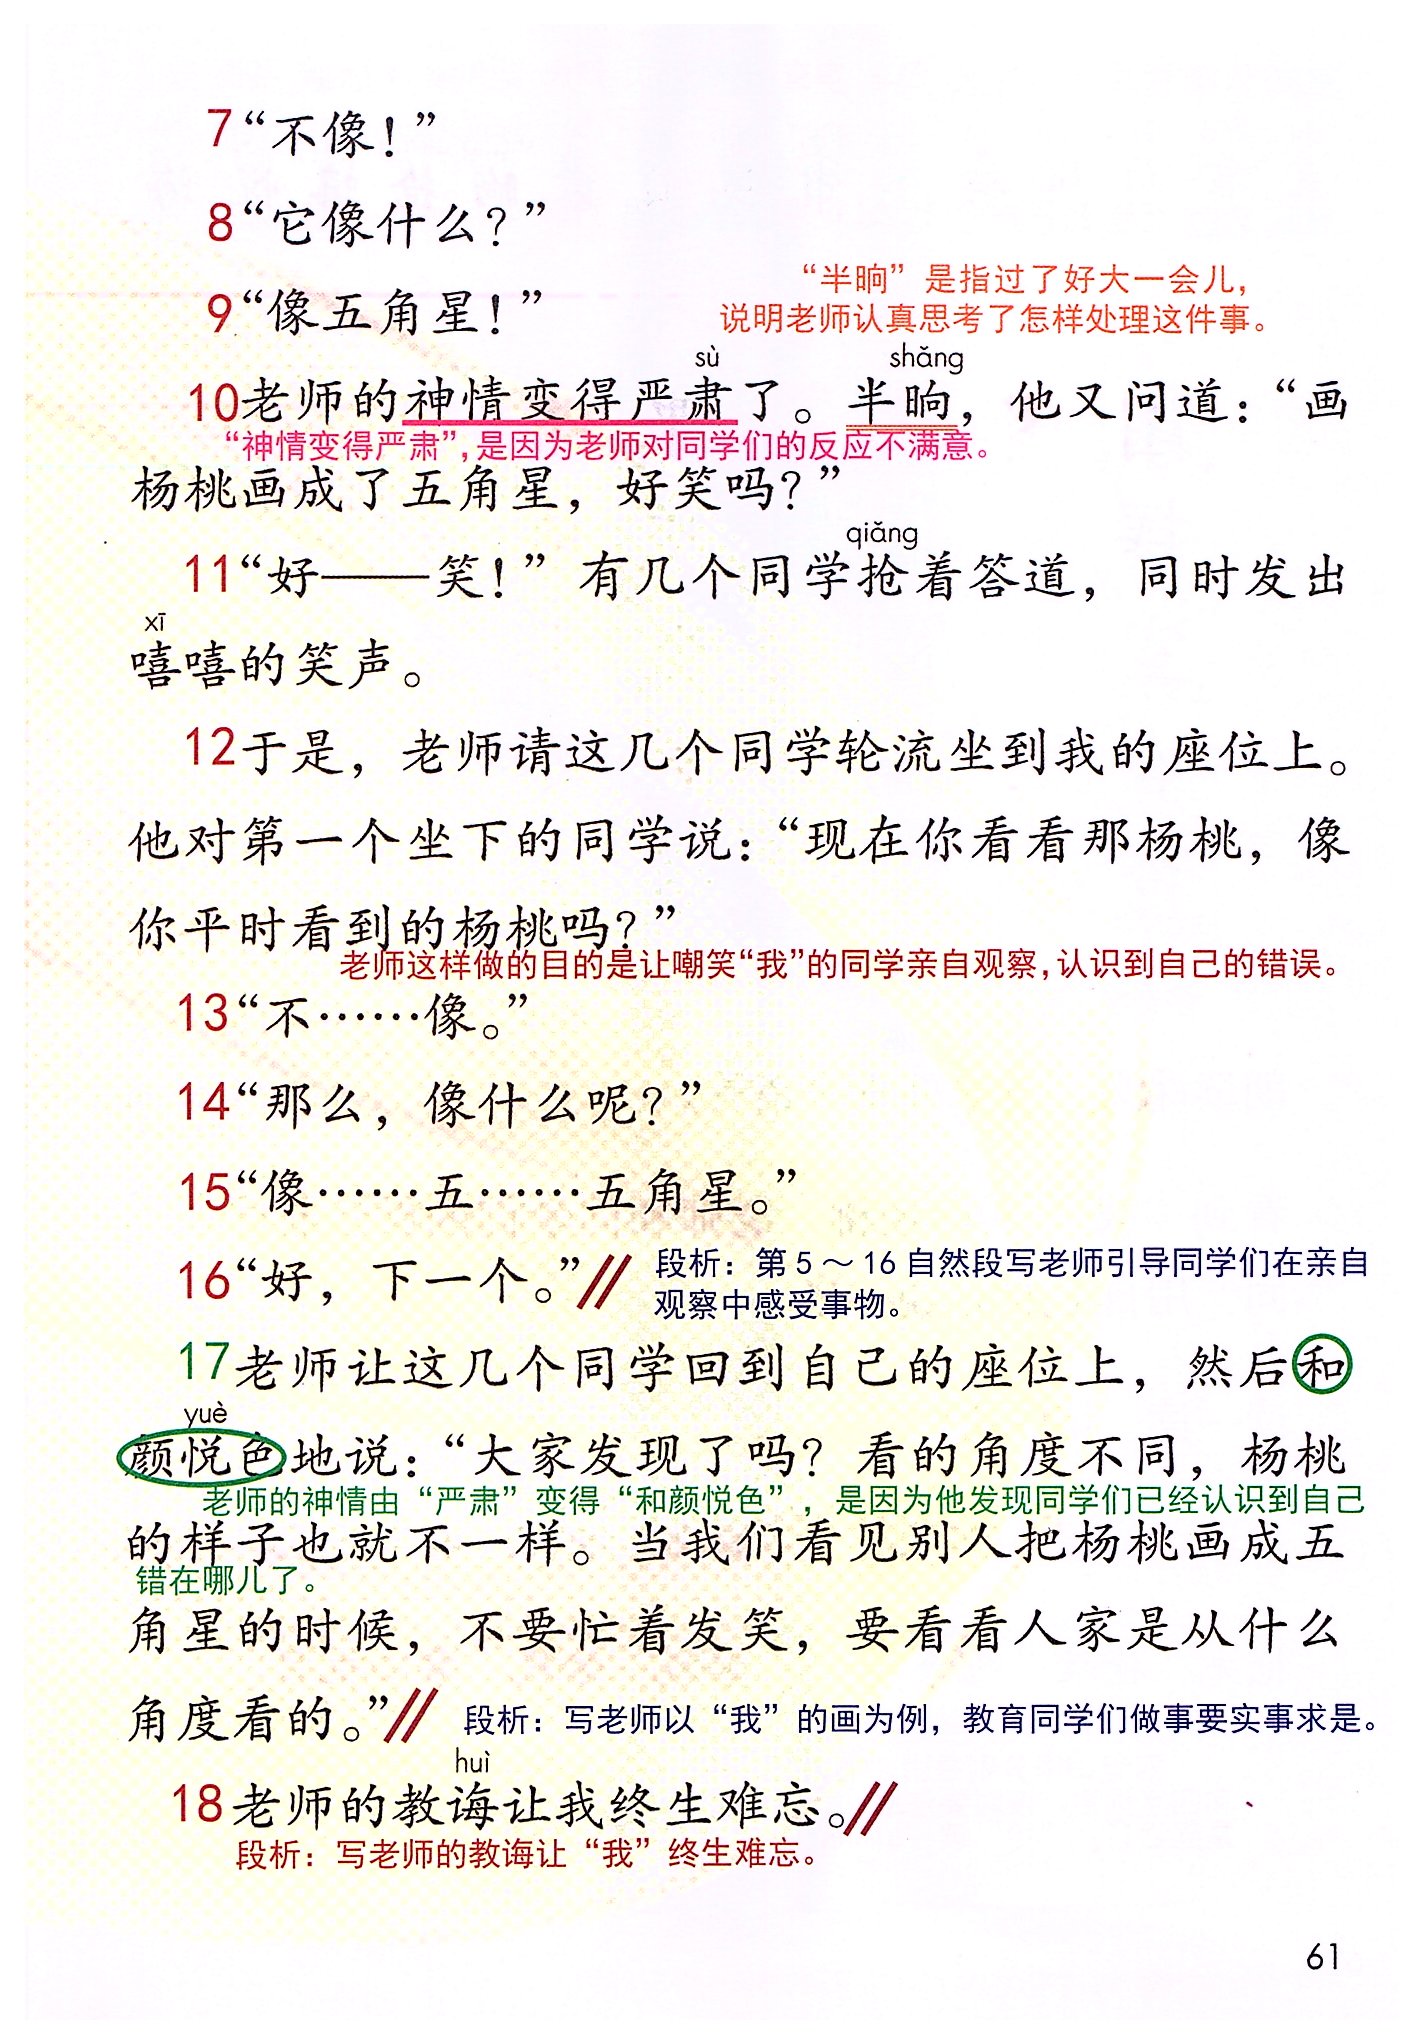 7“不像！”
8“它像什么？”
“半晌”是指过了好大一会儿，
9“像五角星！”
说明老师认真思考了怎样处理这件事。
sù shǎng
10老师的神情变得严肃了。半晌，他又问道：“画
“神情变得严肃”，是因为老师对同学们的反应不满意。
杨桃画成了五角星，好笑吗？”
qiǎng
11“好——笑！”有几个同学抢着答道，同时发出
xī
嘻嘻的笑声。
12于是，老师请这几个同学轮流坐到我的座位上。
他对第一个坐下的同学说：“现在你看看那杨桃，像
你平时看到的杨桃吗？”
老师这样做的目的是让嘲笑“我”的同学亲自观察，认识到自己的错误。
13“不……像。”
14“那么，像什么呢？”
15“像……五……五角星。”
16“好，下一个。”// 段析：第5～16自然段写老师引导同学们在亲自
观察中感受事物。
17老师让这几个同学回到自己的座位上，然后和
yuè
颜悦色地说：“大家发现了吗？看的角度不同，杨桃
老师的神情由“严肃”变得“和颜悦色”，是因为他发现同学们已经认识到自己
的样子也就不一样。当我们看见别人把杨桃画成五
错在哪儿了。
角星的时候，不要忙着发笑，要看看人家是从什么
角度看的。”// 段析：写老师以“我”的画为例，教育同学们做事要实事求是。
huì
18老师的教诲让我终生难忘。//
段析：写老师的教诲让“我”终生难忘。
61